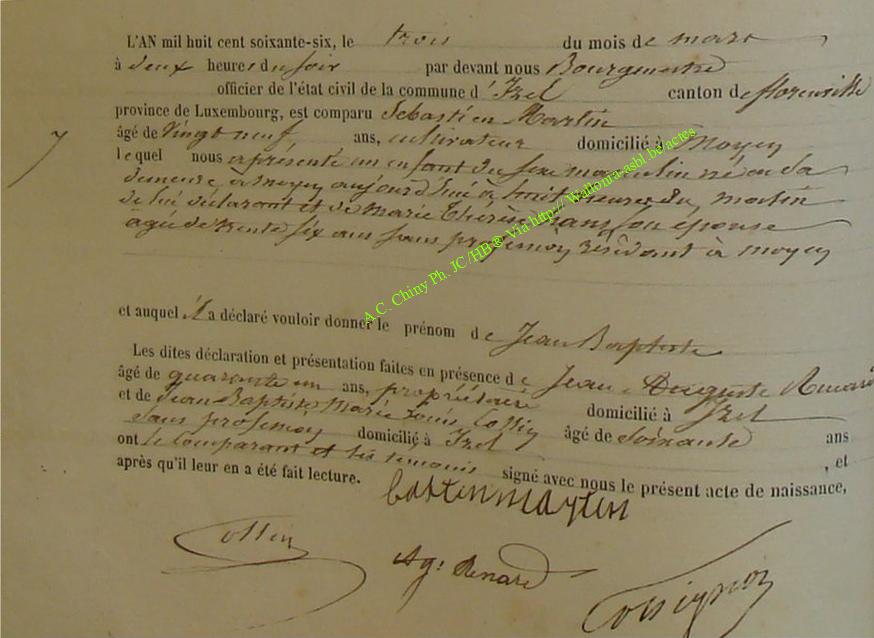 L'AN mil huit cent soixante-six, le trois du mois de mars
à deux heures du soir par devant nous Bourgmestre
officier de l'état civil de la commune d'Izel canton de florenville
province de Luxembourg, est comparu Sebastien Martin
7 âgé de vingt neuf ans, cultivateur domicilié à Moyen
lequel nous a présenté un enfant du sexe masculin né en sa
demeure à moyen aujourd'hui à huit heures du matin
de lui déclarant et de Marie Thérèse son épouse
agée de trente six ans sans profession résidant à moyen
A.C. Chiny Ph. JC /HB® Via http:// Wallonia-asbl.be/actes
et auquel il a déclaré vouloir donner le prénom de Jean Baptiste
Les dites déclaration et présentation faites en présence de Jean Auguste Renard
âgé de quarante un ans, propriétaire domicilié à Izel
et de Jean Baptiste Marie Louis Collin âgé de soixante ans
sans profession domicilié à Izel
ont le comparant et les témoins signé avec nous le présent acte de naissance, et
après qu'il leur en a été fait lecture.
Collin
Ag. Renard